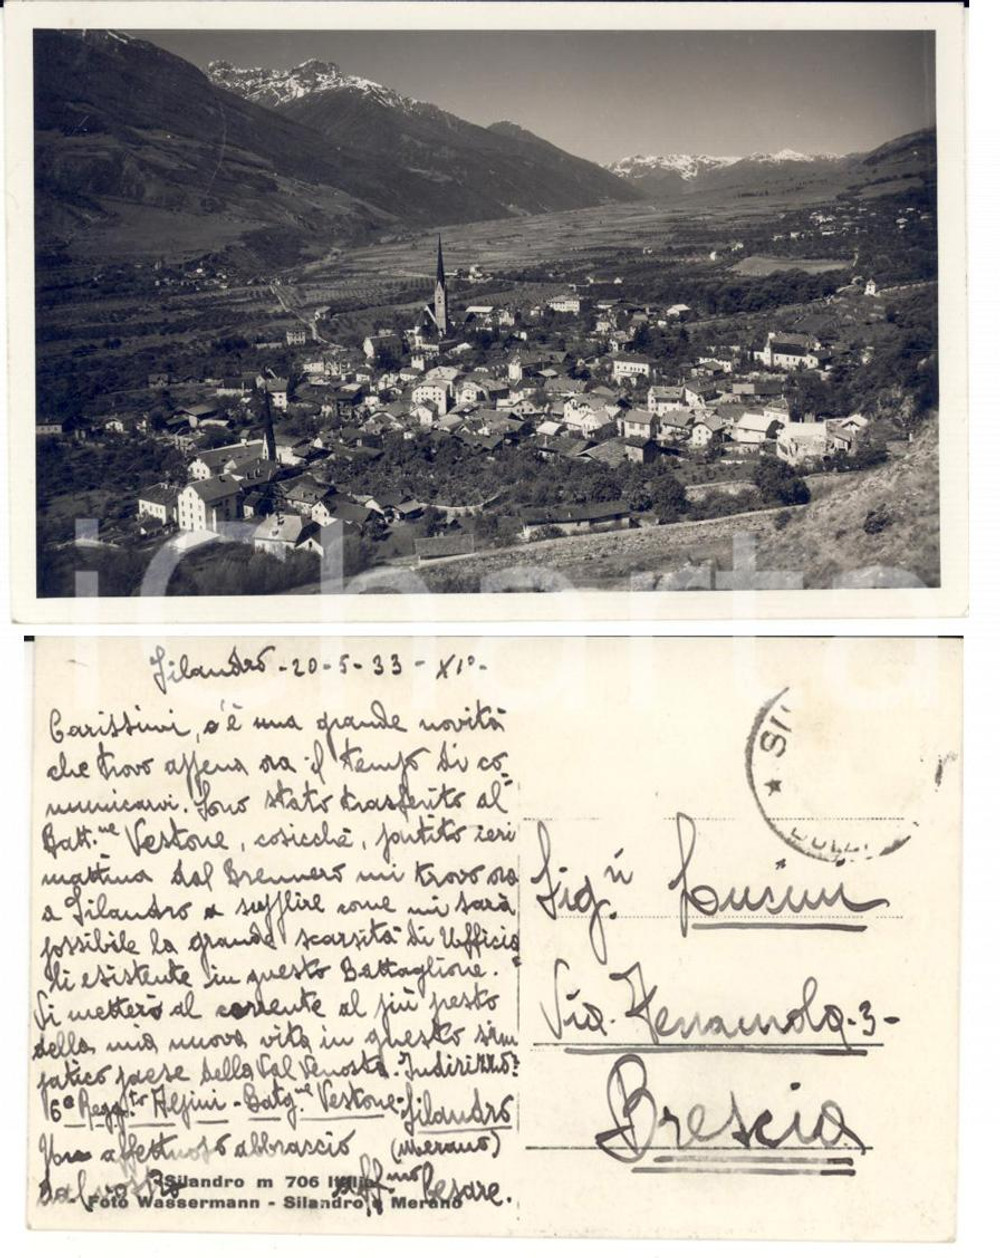 iCharta
Silandro - 20-5-33 - XIº-
Carissimi, c'è una grande novità
che trovo appena ora il tempo di co
municarvi. Sono stato trasferito al
Batt.ne Vestone, cosicchè, partito ieri
mattina dal Brennero mi trovo ora
a Silandro a supplire come mi sarà
possibile la grande scarsità di Uffici
li esistente in questo Battaglione.
Vi metterò al corrente al più presto
della mia nuova vita in questo sim
patico paese della Val Venosta. Indirizzo:
6º Regg.to Alpini - Batg.ne Vestone - Silandro
Un affettuoso abbraccio (Merano)
dal vostro aff.mo Cesare.
Silandro m 706 Italia
Foto Wassermann - Silandro e Merano
★ SI
Sig.ri Lusini
Via Venamola - 3 -
Brescia